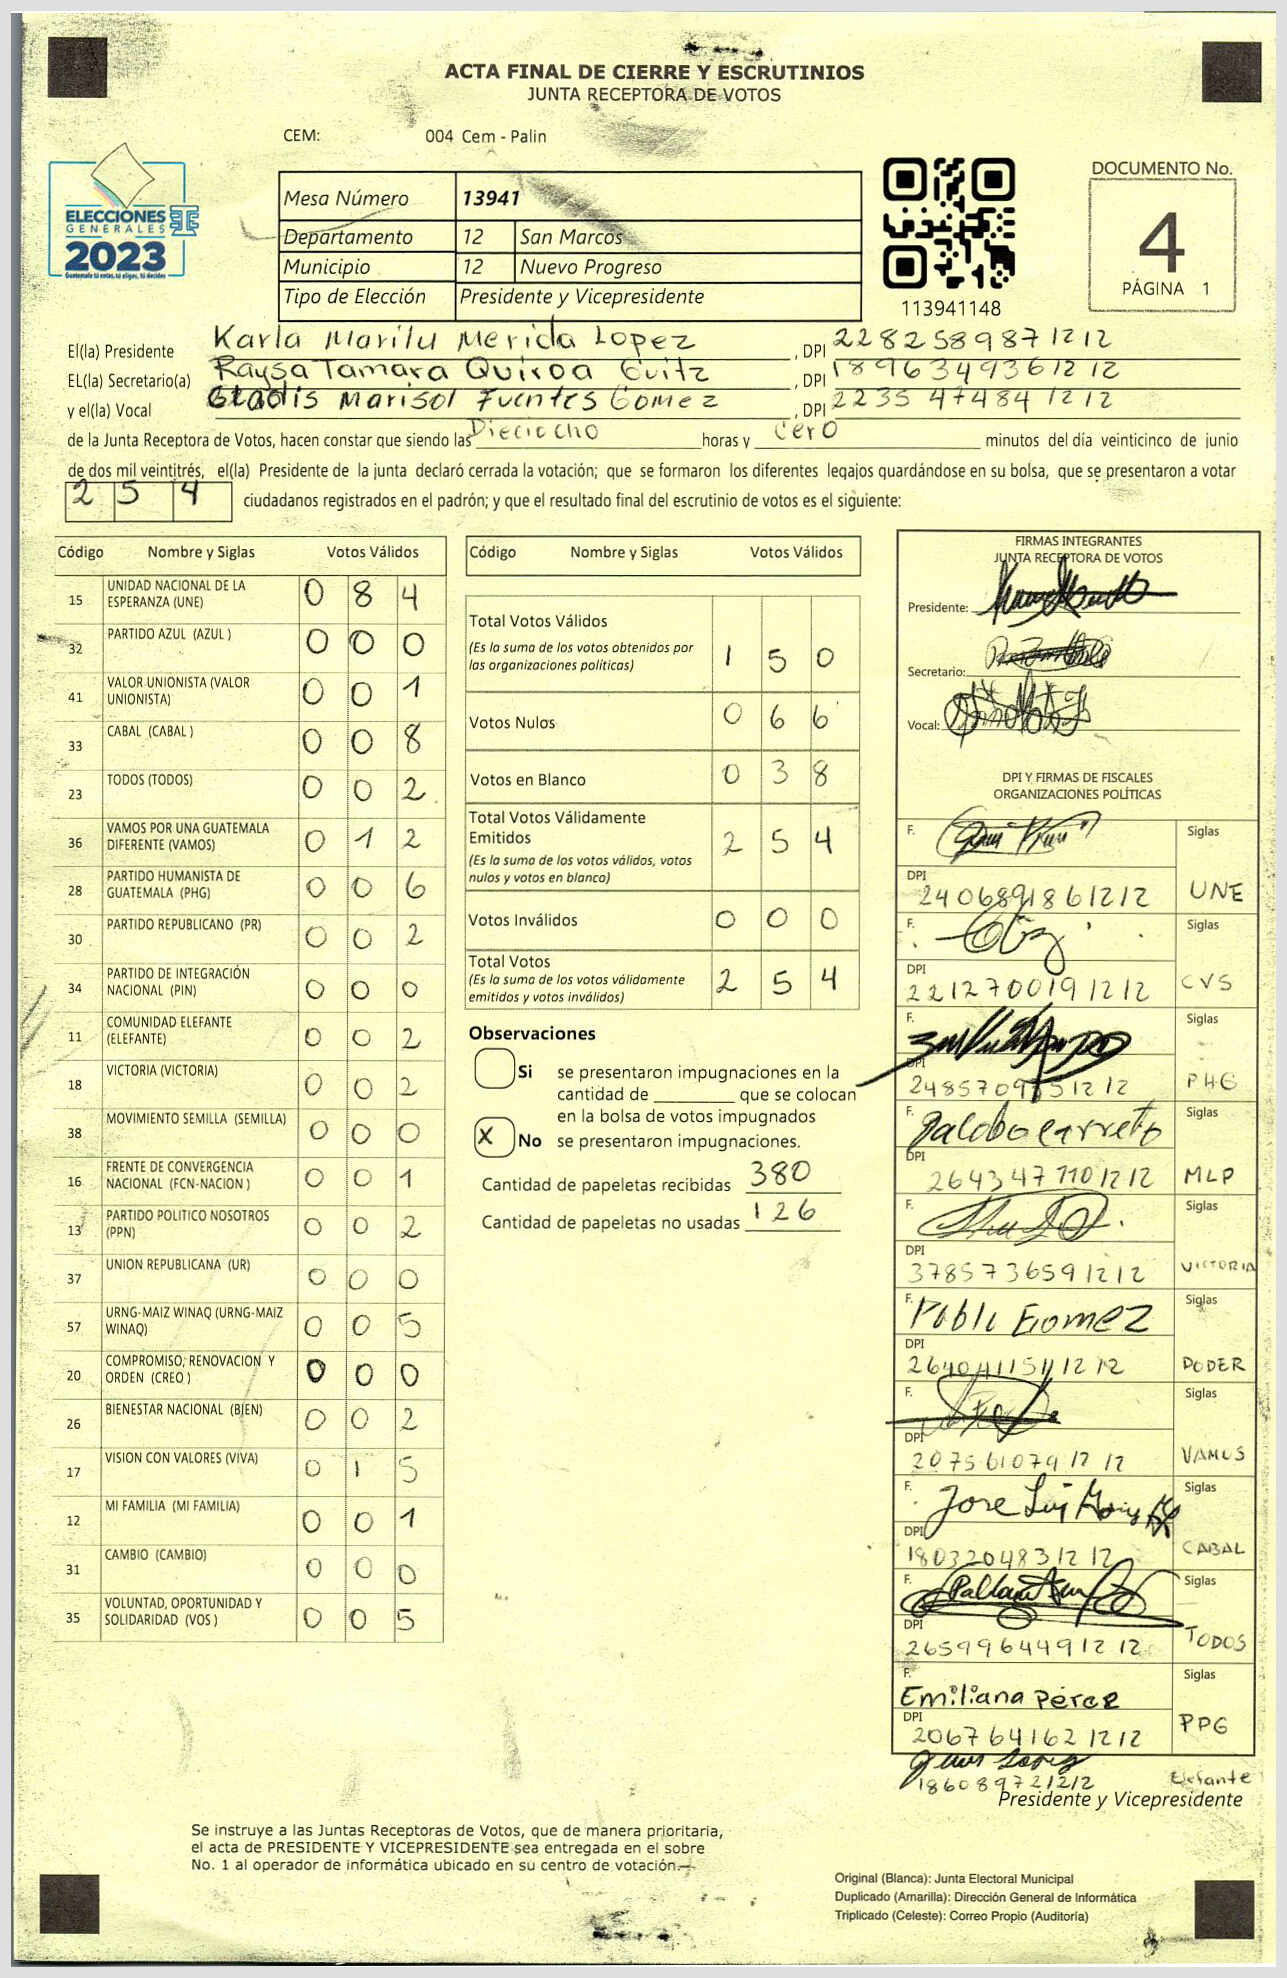 ACTA FINAL DE CIERRE Y ESCRUTINIOS
JUNTA RECEPTORA DE VOTOS
CEM: 004 Cem - Palin
ELECCIONES
GENERALES
2023
Guatemala tú votas, tú eliges, tú decides
Mesa Número 13941
Departamento 12 San Marcos
Municipio 12 Nuevo Progreso
Tipo de Elección Presidente y Vicepresidente
113941148
DOCUMENTO No.
4
PÁGINA 1
El(la) Presidente Karla Marilu Merida Lopez, DPI 2282589871212
EL(la) Secretario(a) Raysa Tamara Quiroa Cuitz, DPI 1896349361212
y el(la) Vocal Gladis Marisol Fuentes Gomez, DPI 2235474841212
de la Junta Receptora de Votos, hacen constar que siendo las Dieciocho horas y cero minutos del día veinticinco de junio
de dos mil veintitrés, el(la) Presidente de la junta declaró cerrada la votación; que se formaron los diferentes legajos quardándose en su bolsa, que se presentaron a votar
254 ciudadanos registrados en el padrón; y que el resultado final del escrutinio de votos es el siguiente:
Código Nombre y Siglas Votos Válidos
15 UNIDAD NACIONAL DE LA ESPERANZA (UNE) 0 8 4
32 PARTIDO AZUL (AZUL ) 0 0 0
41 VALOR UNIONISTA (VALOR UNIONISTA) 0 0 1
33 CABAL (CABAL ) 0 0 8
23 TODOS (TODOS) 0 0 2
36 VAMOS POR UNA GUATEMALA DIFERENTE (VAMOS) 0 1 2
28 PARTIDO HUMANISTA DE GUATEMALA (PHG) 0 0 6
30 PARTIDO REPUBLICANO (PR) 0 0 2
34 PARTIDO DE INTEGRACIÓN NACIONAL (PIN) 0 0 0
11 COMUNIDAD ELEFANTE (ELEFANTE) 0 0 2
18 VICTORIA (VICTORIA) 0 0 2
38 MOVIMIENTO SEMILLA (SEMILLA) 0 0 0
16 FRENTE DE CONVERGENCIA NACIONAL (FCN-NACION ) 0 0 1
13 PARTIDO POLITICO NOSOTROS (PPN) 0 0 2
37 UNION REPUBLICANA (UR) 0 0 0
57 URNG-MAIZ WINAQ (URNG-MAIZ WINAQ) 0 0 5
20 COMPROMISO, RENOVACION Y ORDEN (CREO ) 0 0 0
26 BIENESTAR NACIONAL (BIEN) 0 0 2
17 VISION CON VALORES (VIVA) 0 1 5
12 MI FAMILIA (MI FAMILIA) 0 0 1
31 CAMBIO (CAMBIO) 0 0 0
35 VOLUNTAD, OPORTUNIDAD Y SOLIDARIDAD (VOS ) 0 0 5
Código Nombre y Siglas Votos Válidos
Total Votos Válidos
(Es la suma de los votos obtenidos por
las organizaciones políticas) 1 5 0
Votos Nulos 0 6 6
Votos en Blanco 0 3 8
Total Votos Válidamente
Emitidos
(Es la suma de los votos válidos, votos
nulos y votos en blanco) 2 5 4
Votos Inválidos 0 0 0
Total Votos
(Es la suma de los votos válidamente
emitidos y votos inválidos) 2 5 4
Observaciones
Si se presentaron impugnaciones en la
cantidad de ________ que se colocan
en la bolsa de votos impugnados
X No se presentaron impugnaciones.
Cantidad de papeletas recibidas 380
Cantidad de papeletas no usadas 126
FIRMAS INTEGRANTES
JUNTA RECEPTORA DE VOTOS
Presidente:
Secretario:
Vocal:
DPI Y FIRMAS DE FISCALES
ORGANIZACIONES POLÍTICAS
F. Siglas
DPI 2406891861212 UNE
F. Siglas
DPI 2212700191212 CVS
F. Siglas
DPI PHG
F. Jacobo carreto Siglas
DPI 2643477101212 MLP
F. Siglas
DPI 3785736591212 VICTORIA
F. Pablo Gomez Siglas
DPI 2640411511212 PODER
F. Siglas
DPI 2075610791212 VAMOS
F. Jose Luis Siglas
DPI 1803204831212 CABAL
F. Siglas
DPI 2659964491212 TODOS
F. Emiliana Pérez Siglas
DPI 2067641621212 PPG
186089721212 Elefante
Presidente y Vicepresidente
Se instruye a las Juntas Receptoras de Votos, que de manera prioritaria,
el acta de PRESIDENTE Y VICEPRESIDENTE sea entregada en el sobre
No. 1 al operador de informática ubicado en su centro de votación.
Original (Blanca): Junta Electoral Municipal
Duplicado (Amarilla): Dirección General de Informática
Triplicado (Celeste): Correo Propio (Auditoría)